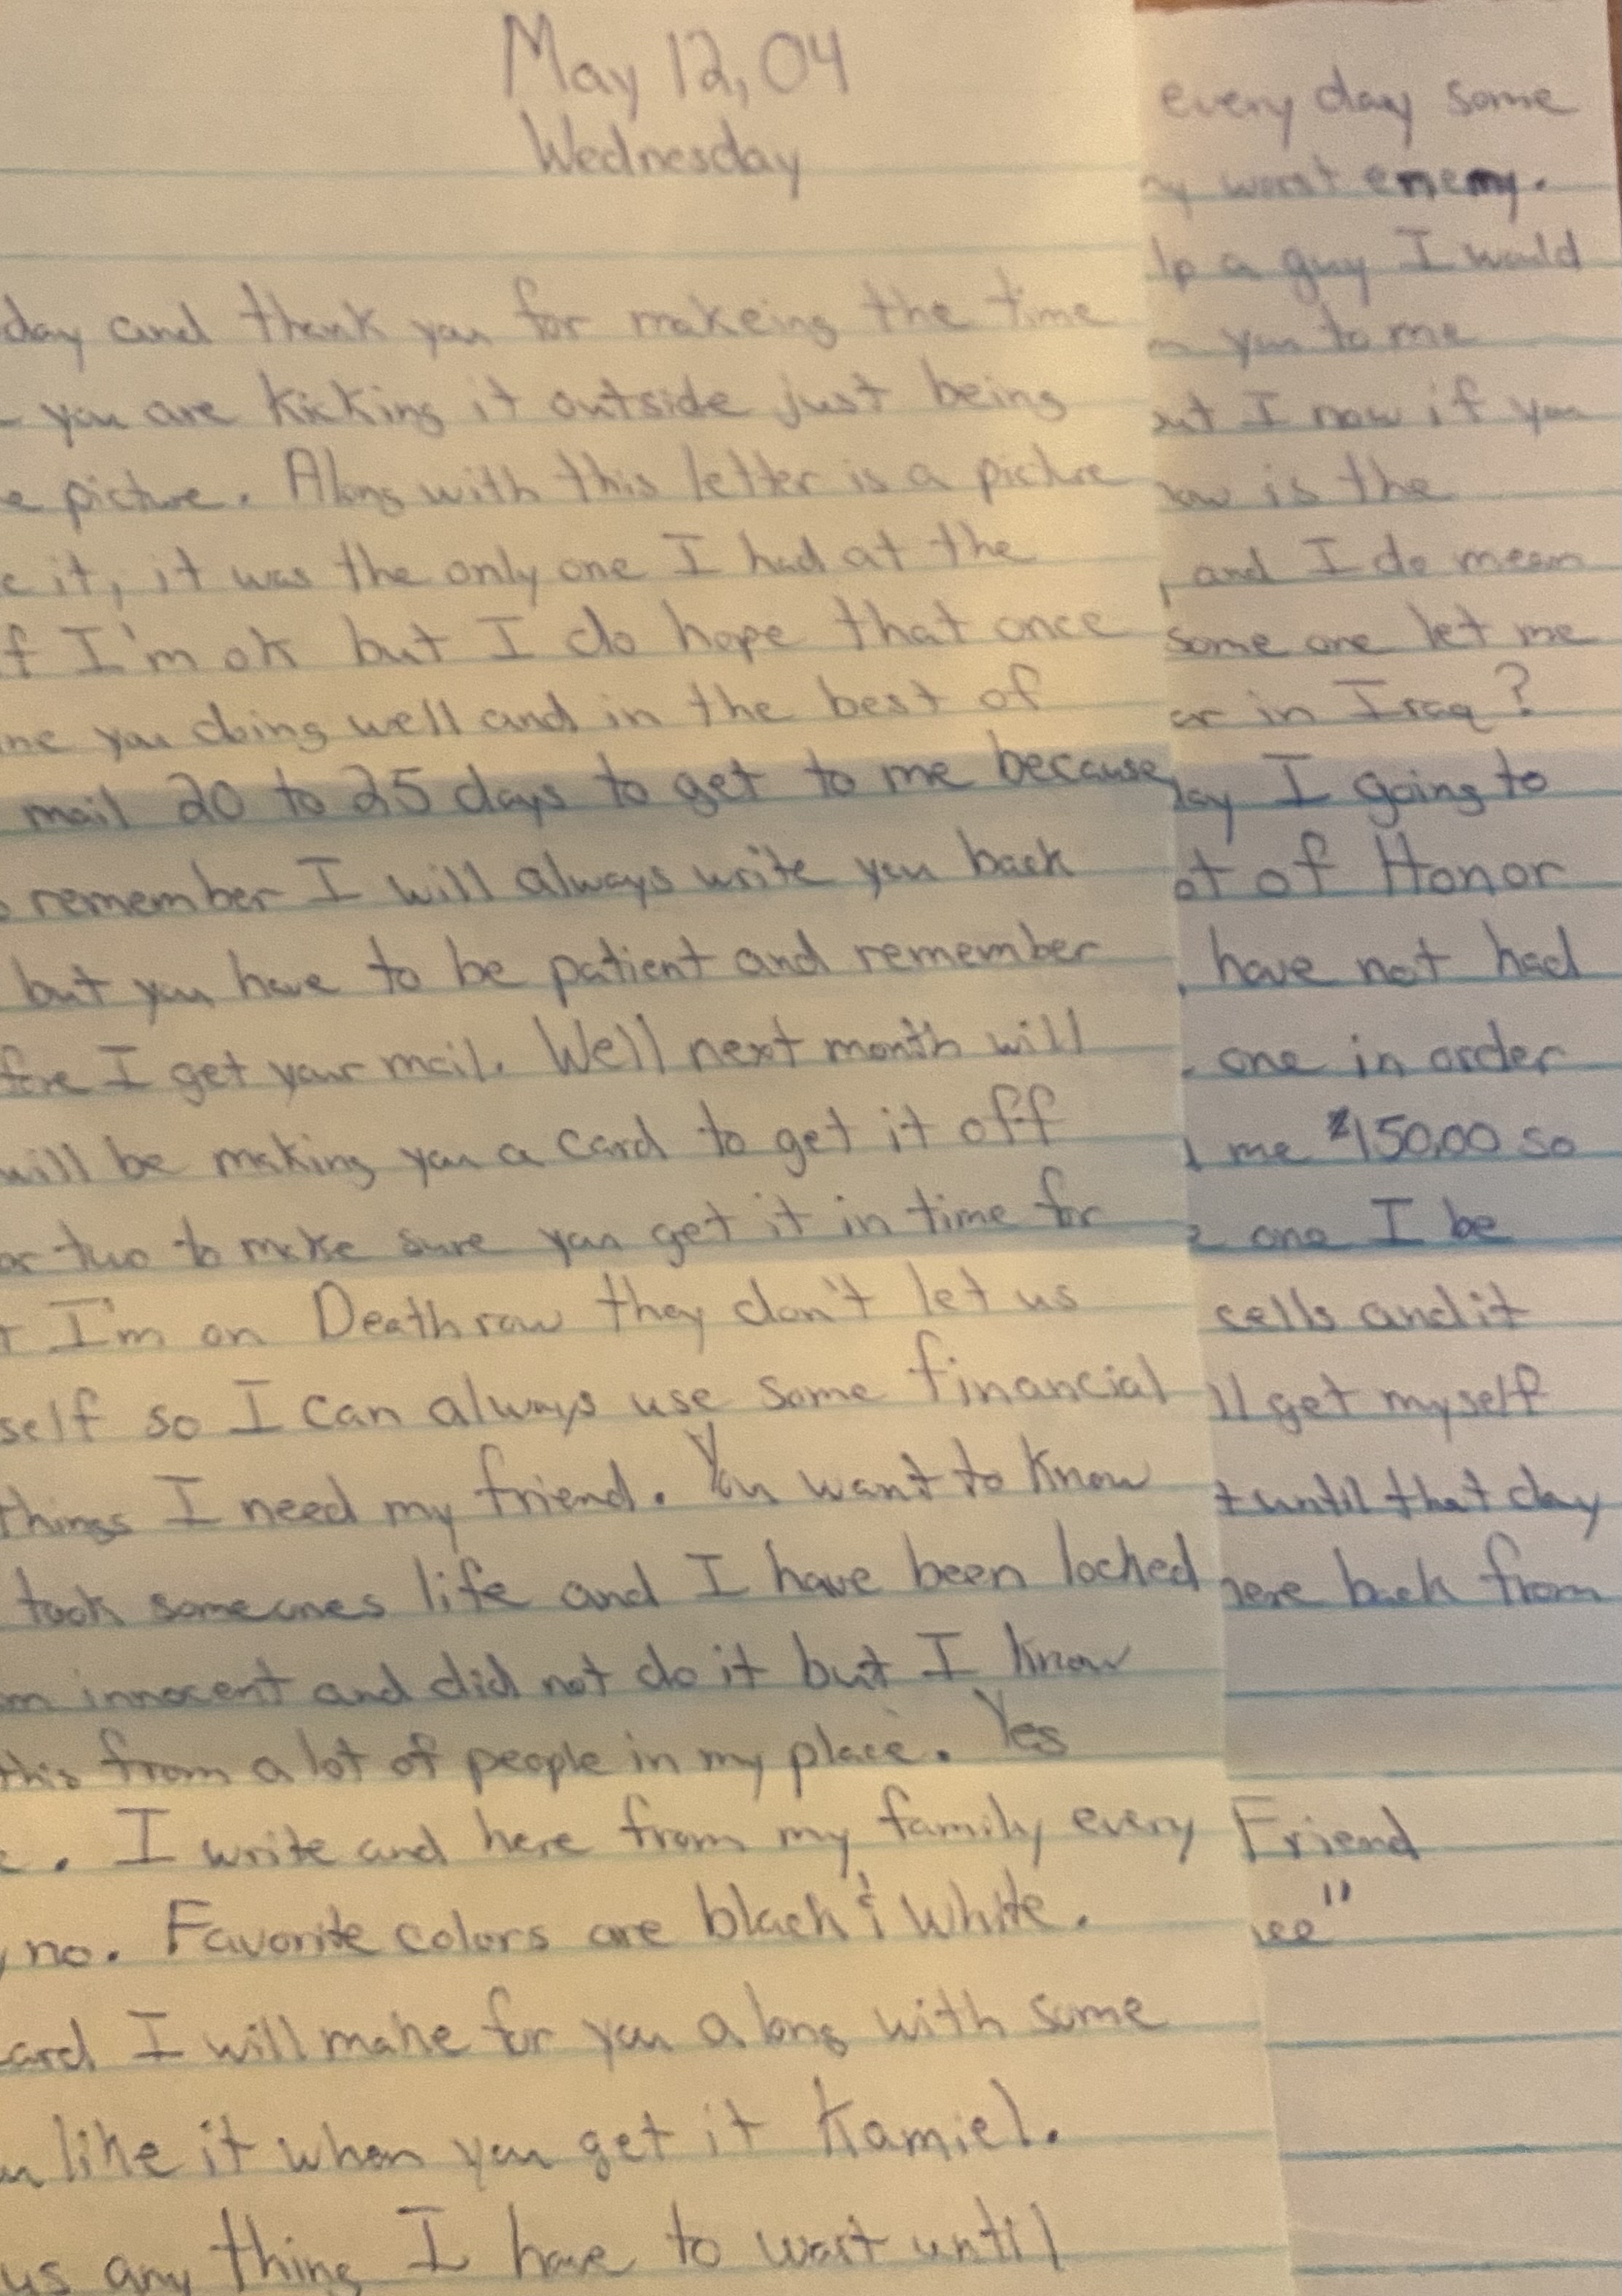 May 12, 04
Wednesday
day and thank you for makeing the time
you are kicking it outside just being
e picture. Along with this letter is a picture
e it, it was the only one I had at the
f I'm ok but I do hope that once
ne you doing well and in the best of
mail 20 to 25 days to get to me because
remember I will always write you back
but you have to be patient and remember
fore I get your mail. Well next month will
will be making you a card to get it off
or two to make sure you get it in time for
I'm on Death row they don't let us
self so I can always use some financial
things I need my friend. You want to know
took someones life and I have been locked
m innocent and did not do it but I know
this from a lot of people in my place. Yes
e. I write and here from my family every
no. Favorite colors are black & white.
ard I will make for you along with some
u like it when you get it Kamiel.
us any thing I have to wait until
every day some
ny worst enemy.
lp a guy I would
you to me
out I now if you
how is the
, and I do mean
some one let me
ar in Iraq?
lay I going to
ot of Honor
, have not had
one in order
me $150.00 so
e one I be
cells and it
ll get myself
t until that day
here back from
Friend
ee"